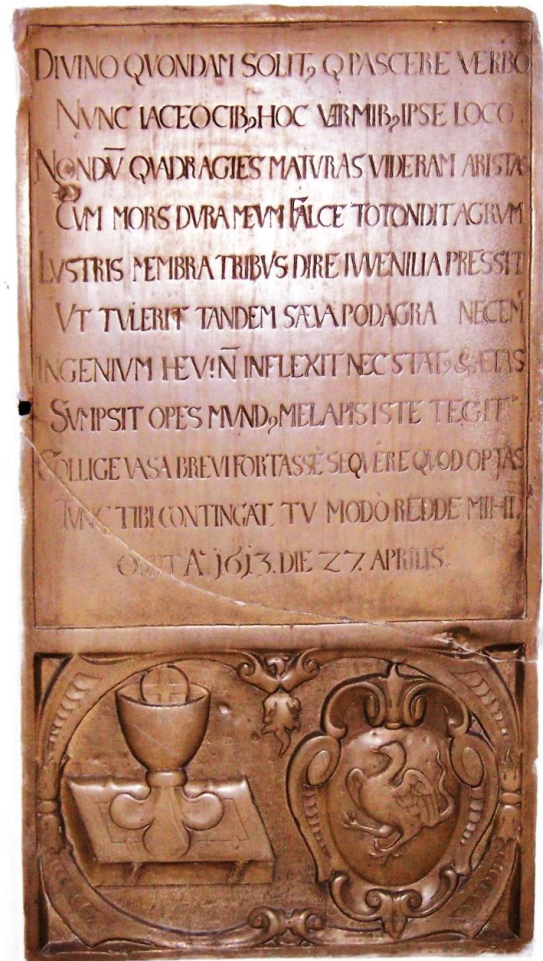 DIVINO QVONDAM SOLIT, Q PASCERE VERBO
NVNC IACEO CIB, HOC VERMIB, IPSE LOCO.
NONDV̄ QVADRAGIES MATVRAS VIDERAM ARISTAS
CVM MORS DVRA MEVM FALCE TOTONDIT AGRVM
LVSTRIS MEMBRA TRIBVS DIRE IVVENILIA PRESSIT
VT TVLERIT TANDEM SÆVA PODAGRA NECEM
INGENIVM HEV! N̄ INFLEXIT NEC STAT, & ÆTAS
SVMPSIT OPES MVND, ME LAPIS ISTE TEGIT
COLLIGE VASA BREVI FORTASSE SEQVERE QVOD OPTAS
TVNC TIBI CONTINGAT, TV MODO REDDE MIHI.
OBIIT A° 1613. DIE 27. APRILIS.